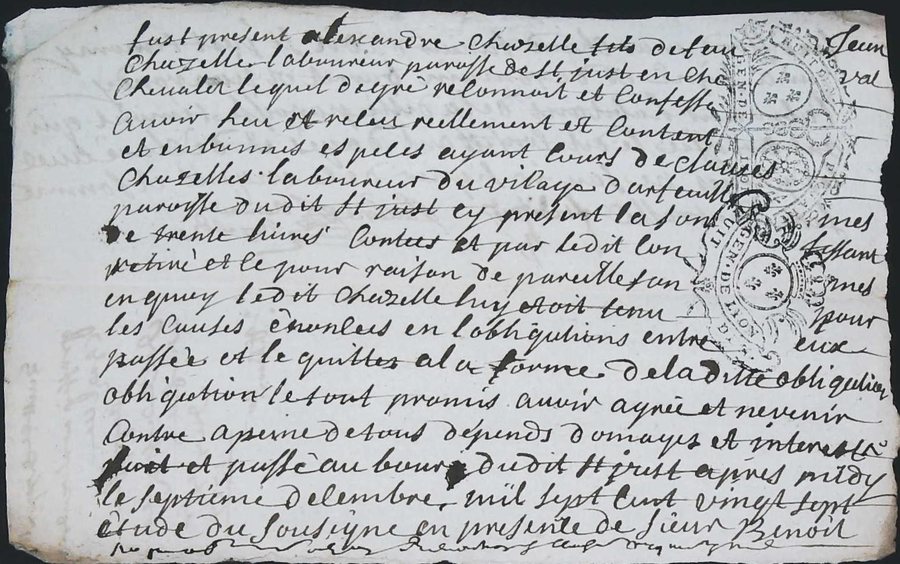 fust présent alexandre Chazelle fils de feu Jean
Chazelle laboureur paroisse de St just en Che val
Chevalet lequel de gré reconnoit et Confesse
auvoir heu et releu reellement et Contant
et en bonnes espeles ayant Cours de Claudes
Chazelles laboureur du vilage d'arfeuill
paroisse du dit St just cy présent la som mes
de trente livres Contees et par ledit Con fessant
retiré et le pour raison de pareille som mes
en quoy ledit Chazelle luy etoit tenu pour
les Causes énonlees en l'obligations entre eux
passée et le quittes a la forme de la ditte obligation
obligation le tout promis auvoir agrée et nevenir
Contre a peine de tous dépends domages et interests
fait et passé au bourg dudit St just apres midy
le septiéme delembre mil sept Cent vingt sept
étude du Sousigne en présente de Sieur Benoit